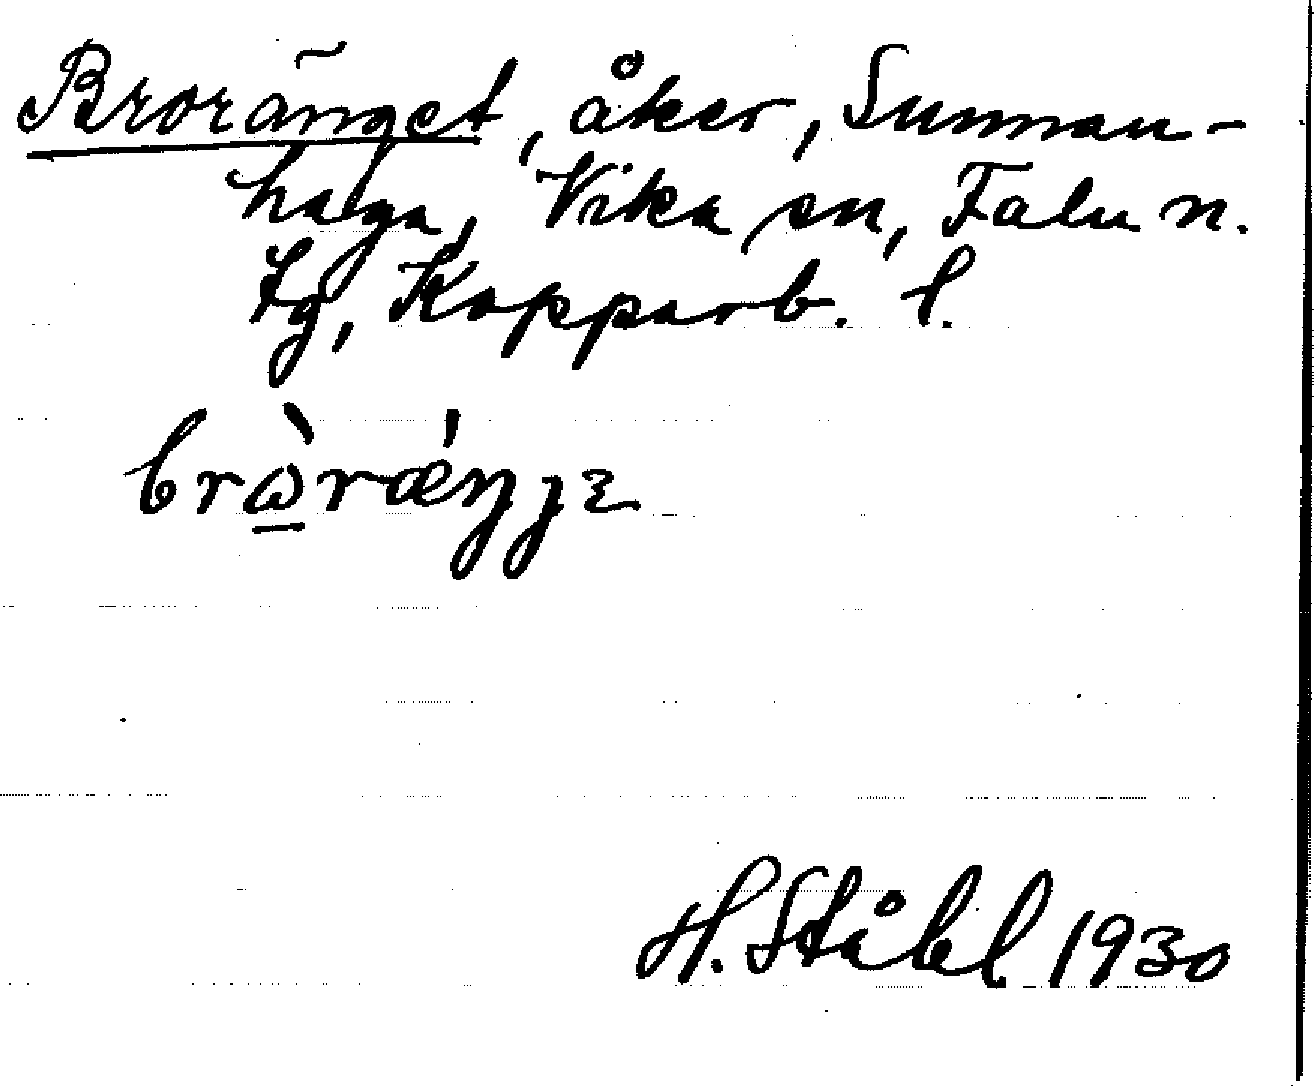 Broränget, åker, Sunnan-
haga, Vika sn, Falu n.
tg, Kopparb. l.
brὼ̲rǽŋɟɛ
H. Ståhl 1930